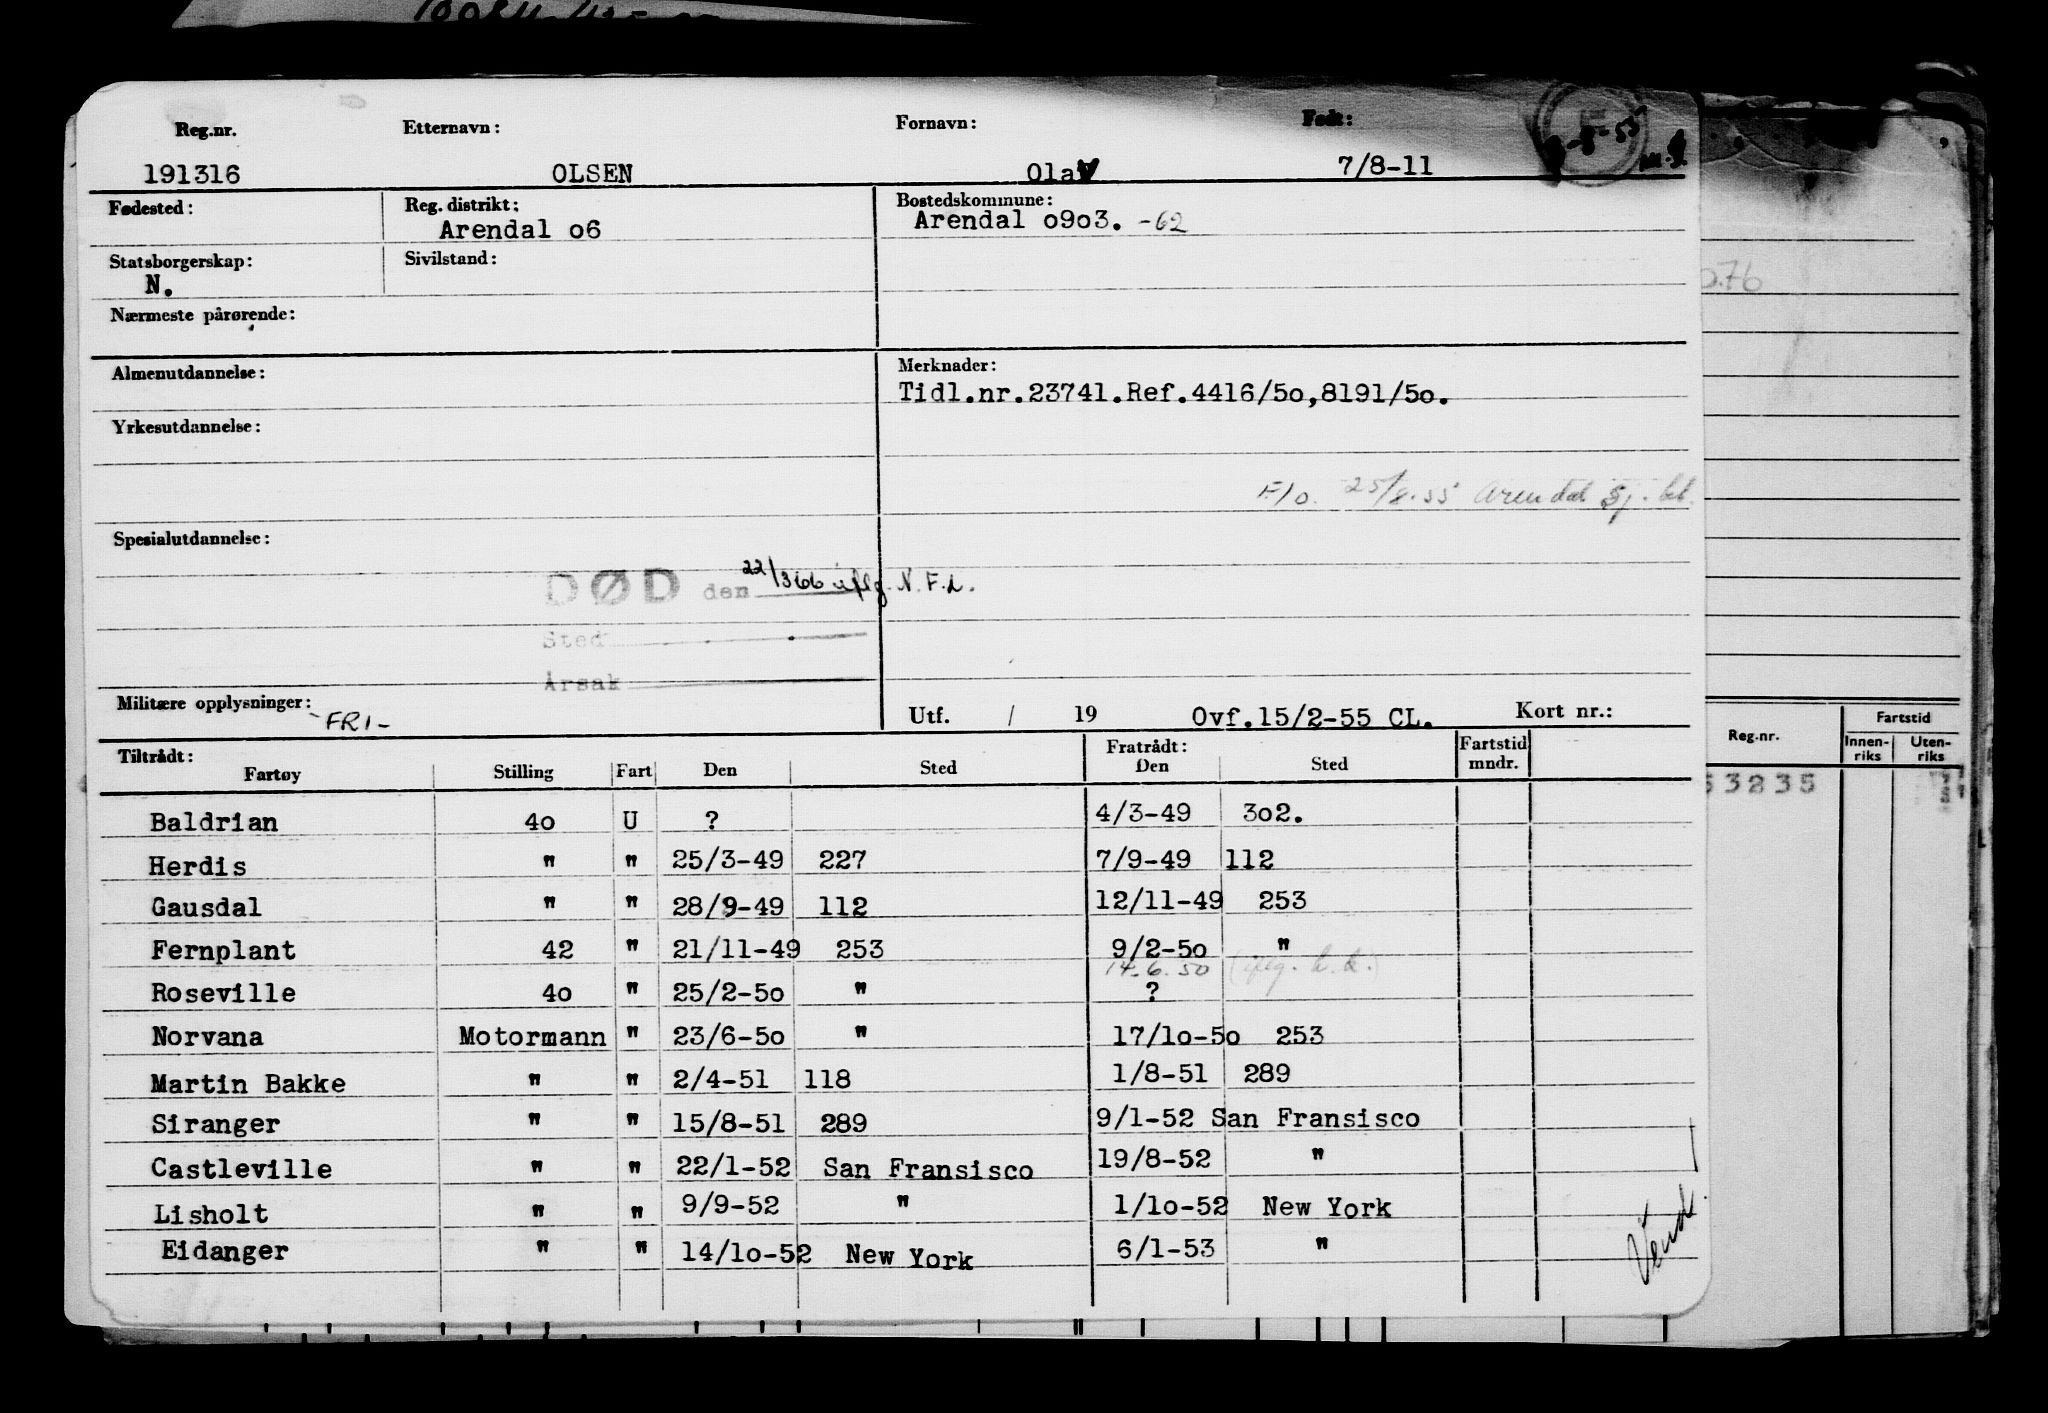 Reg.nr. Etternavn: Fornavn: Født:
191316 OLSEN Olav 7/8-11
Fødested: Reg. distrikt: Bostedskommune:
Arendal o6 Arendal o9o3. -62
Statsborgerskap: Sivilstand:
N.
Nærmeste pårørende:
Almenutdannelse: Merknader:
Tidl.nr.23741.Ref.4416/5o,8191/5o.
Yrkesutdannelse:
F/o. 25/8.55 Arendal Sj.
Spesialutdannelse:
DØD den 22/366 N.F.
Sted
Årsak
Militære opplysninger: -FRI- Utf. / 19 Ovf.15/2-55 CL. Kort nr.:
Tiltrådt: Fratrådt: Fartstid mndr.
Fartøy Stilling Fart Den Sted Den Sted
Baldrian 4o U ? 4/3-49 3o2.
Herdis " " 25/3-49 227 7/9-49 112
Gausdal " " 28/9-49 112 12/11-49 253
Fernplant 42 " 21/11-49 253 9/2-5o "
14.6.50
Roseville 4o " 25/2-5o " ?
Norvana Motormann " 23/6-5o " 17/1o-5o 253
Martin Bakke " " 2/4-51 118 1/8-51 289
Siranger " " 15/8-51 289 9/1-52 San Fransisco
Castleville " " 22/1-52 San Fransisco 19/8-52 "
Lisholt " " 9/9-52 " 1/1o-52 New York
Eidanger " " 14/1o-52 New York 6/1-53 "
Vend
Reg.nr. Fartstid
Innen-riks Uten-riks
3235